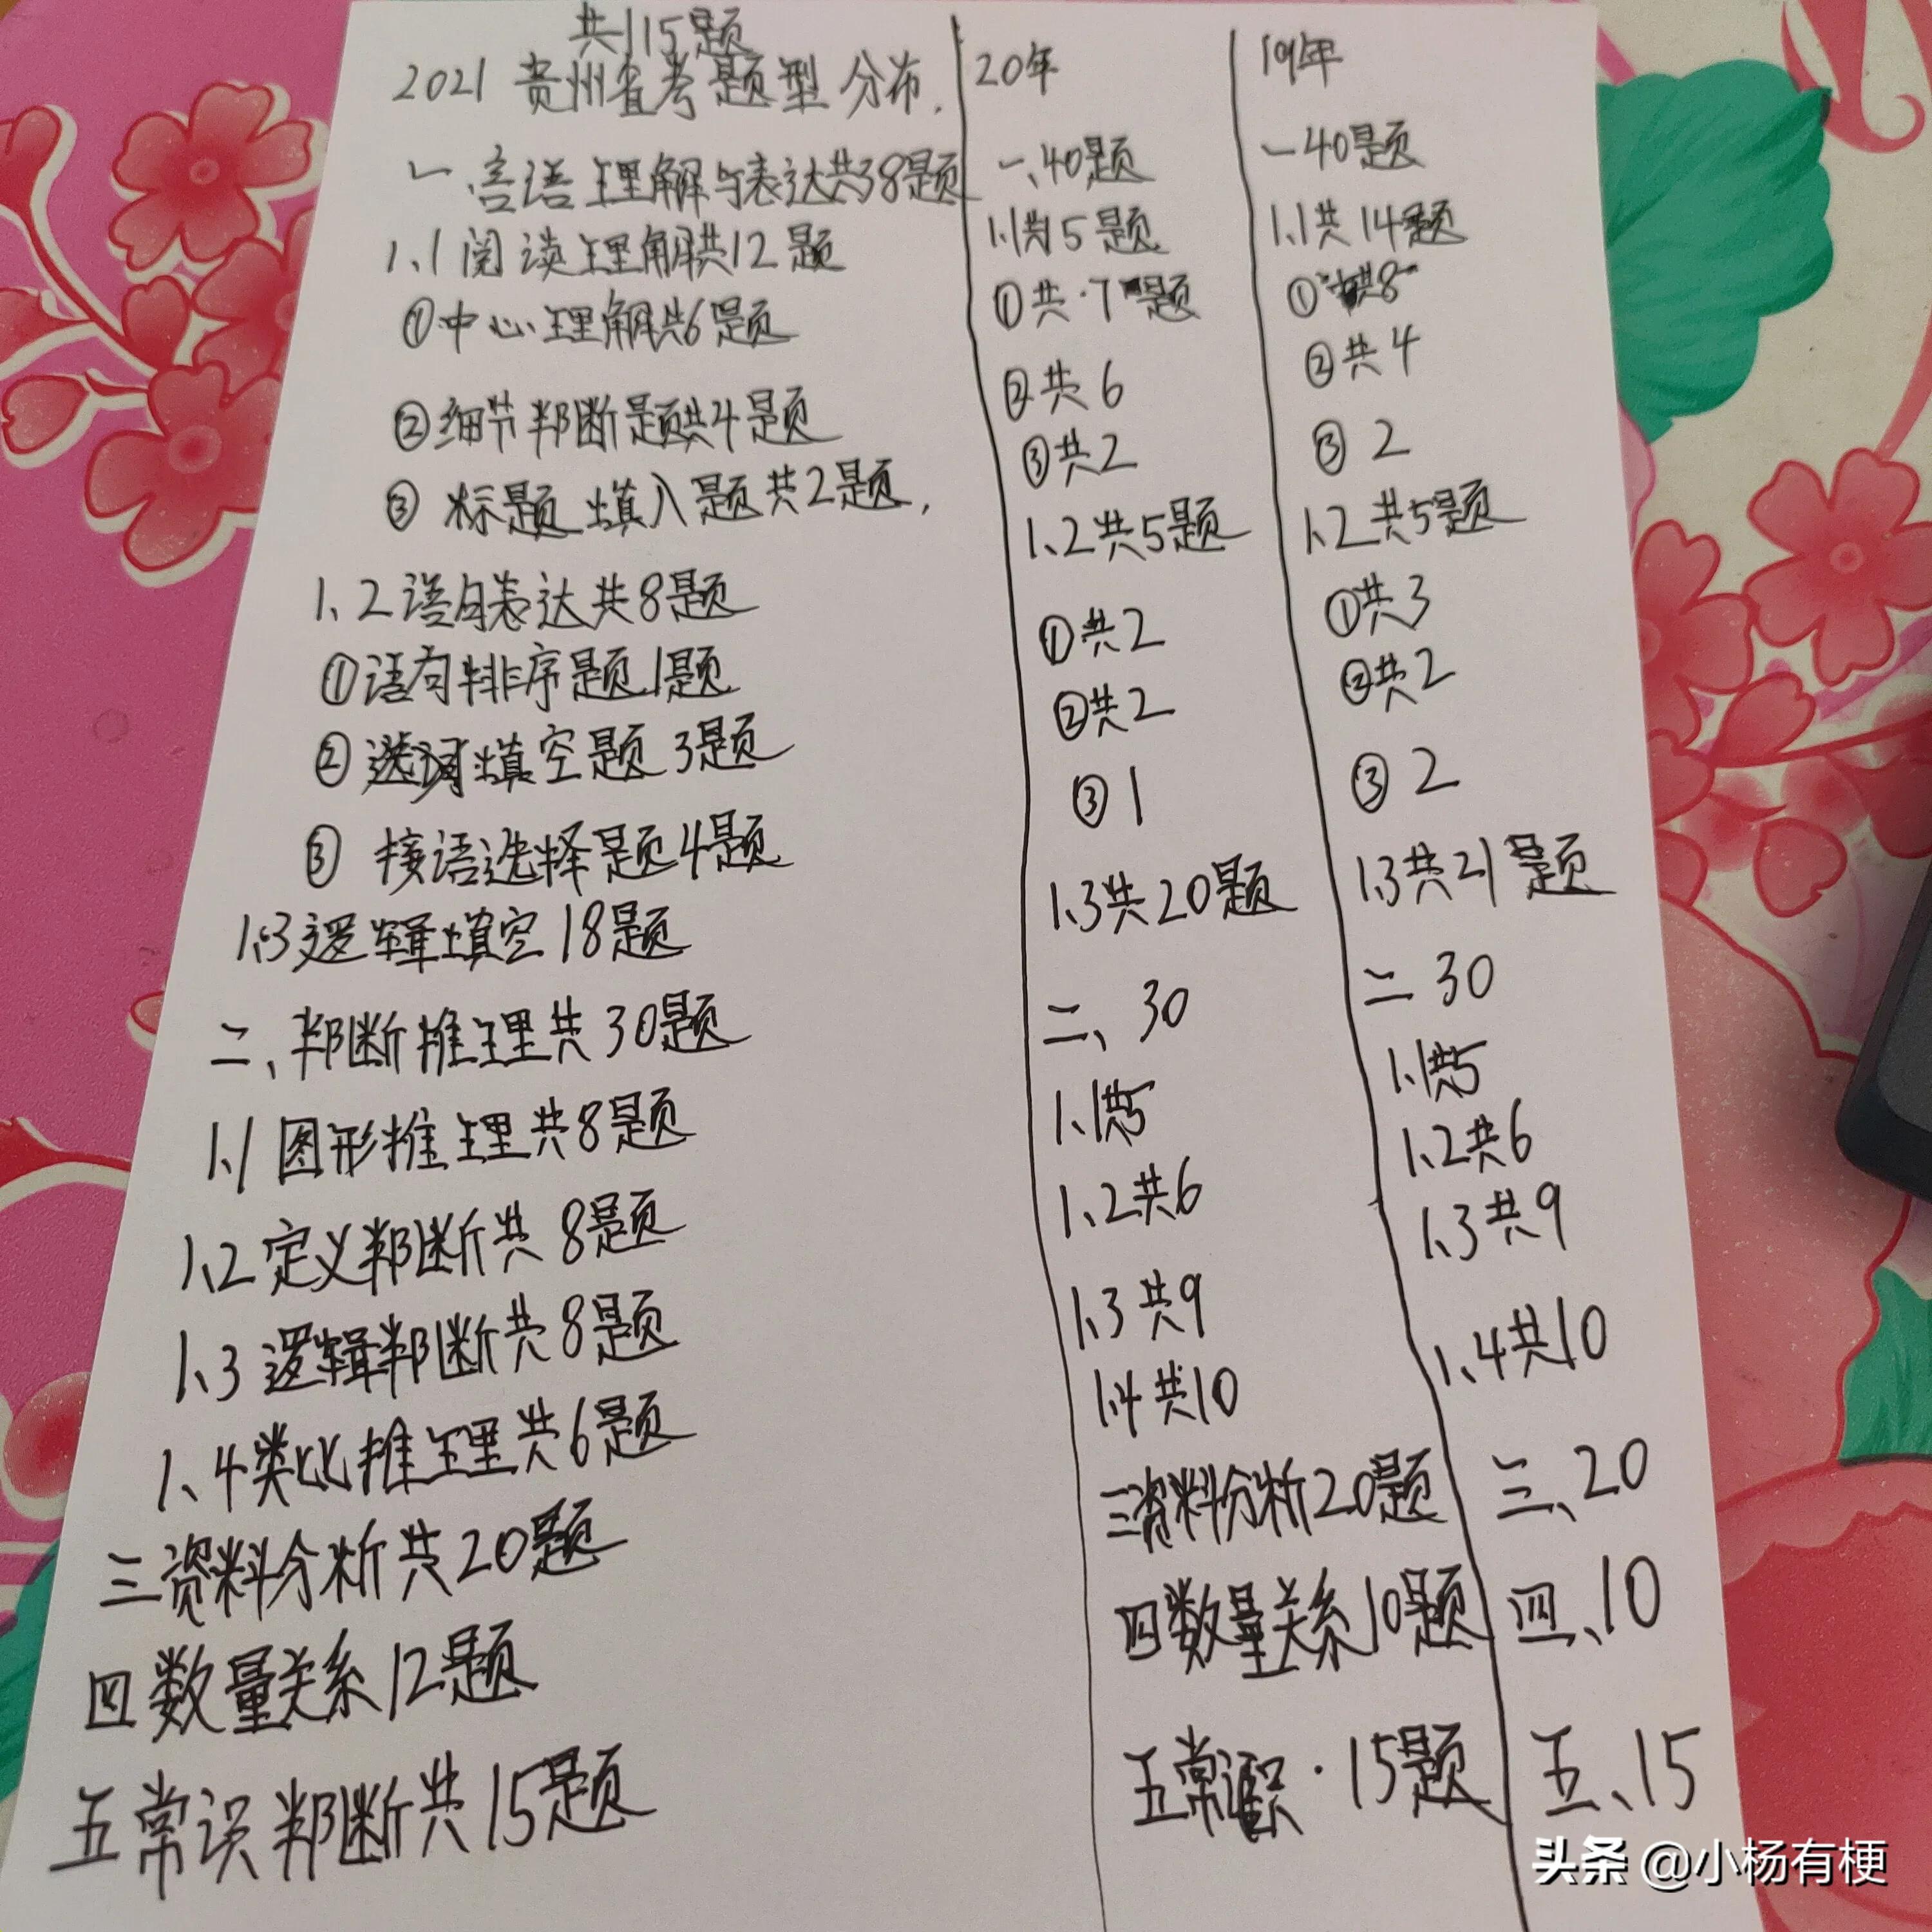 共115题
2021贵州省考题型分布.
一、言语理解与表达共38题
1、1阅读理解共12题
①中心理解共6题
②细节判断题共4题
③标题填入题共2题.
1、2语句表达共8题
①语句排序题1题
②选词填空题3题
③接语选择题4题
1.3逻辑填空18题
二、判断推理共30题
1、1图形推理共8题
1、2定义判断共8题
1、3逻辑判断共8题
1、4类比推理共6题
三资料分析共20题
四数量关系12题
五常误判断共15题
20年
一、40题
1、1共15题
①共·7题
②共6
③共2
1、2共5题
①共2
②共2
③1
1、3共20题
二、30
1、1共5
1、2共6
1、3共9
1.4共10
三资料分析20题
四数量关系10题
五常识·15题
19年
一40题
1.1共14题
①共8
②共4
③2
1、2共5题
①共3
②共2
③2
1.3共21题
二30
1、1共5
1、2共6
1、3共9
1、4共10
三、20
四、10
五、15
头条 @小杨有梗